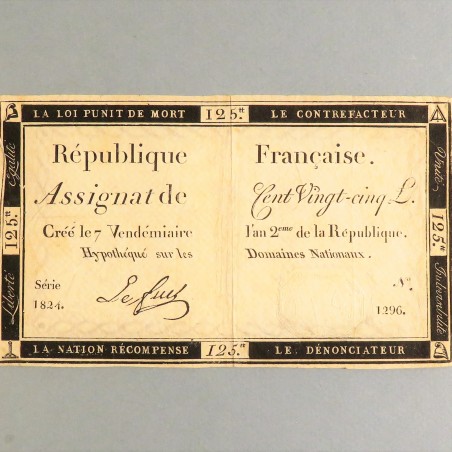 LA LOI PUNIT DE MORT 125.tt LE CONTREFACTEUR
Egalité
Unité
République Française.
Assignat de Cent Vingt-cinq L.
Créé le 7 Vendémiaire l'an 2eme de la République.
Hypothéqué sur les Domaines Nationaux.
125.tt
125.tt
Série No.
1824. 1296.
Liberté
Indivisibilité
LA NATION RÉCOMPENSE 125.tt LE DÉNONCIATEUR